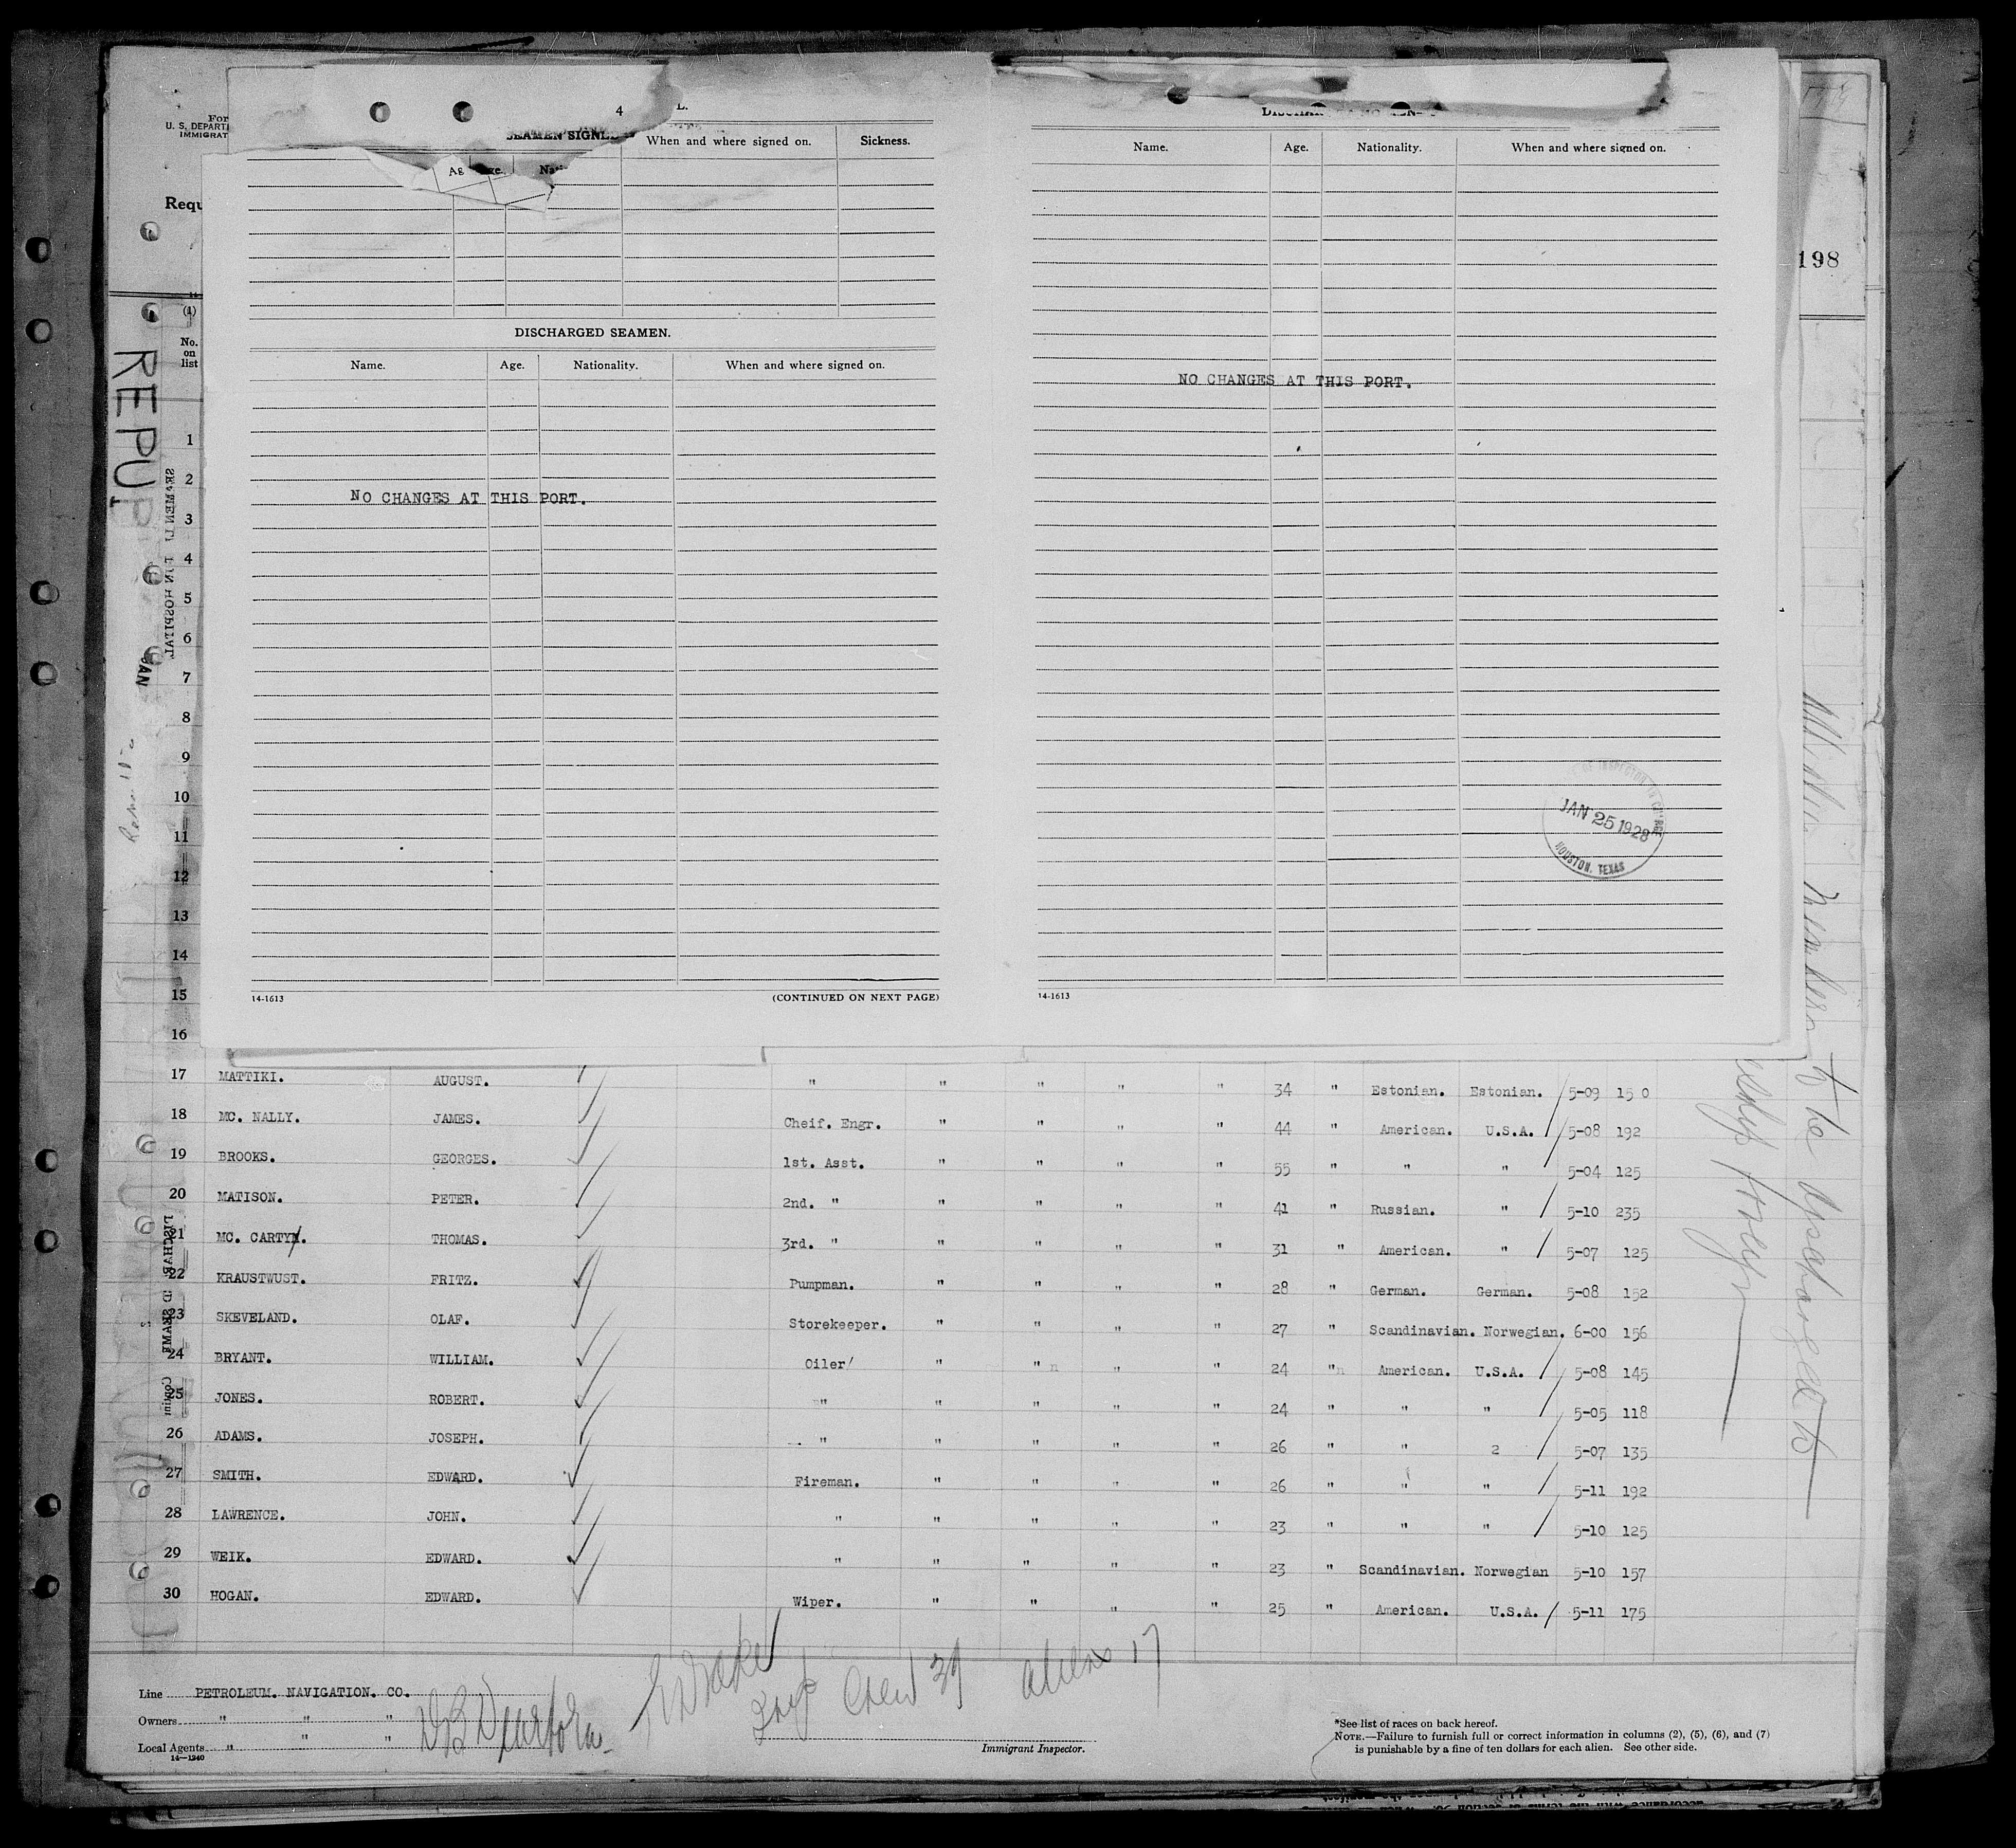 U. S. DEPART
IMMIGRAT
Requ
4
SEAMEN SIGNE
When and where signed on.	Sickness.
Age.
DISCHARGED SEAMEN.
Name.	Age.	Nationality.	When and where signed on.
NO CHANGES AT THIS PORT.
14-1613	(CONTINUED ON NEXT PAGE)
Name.	Age.	Nationality.	When and where signed on.
NO CHANGES AT THIS PORT.
JAN 25 1928
HOUSTON, TEXAS
14-1613
198
(1)
No.
on
list
1
2
3
4
5
6
7
8
9
10
11
12
13
14
15
16
17 MATTIKI. AUGUST. " " " " " 34 " Estonian. Estonian. 5-09 15 0
18 MC. NALLY. JAMES. Cheif. Engr. " " " " 44 " American. U.S.A. 5-08 192
19 BROOKS. GEORGES. 1st. Asst. " " " " 55 " " " 5-04 125
20 MATISON. PETER. 2nd. " " " " " 41 " Russian. " 5-10 235
21 MC. CARTY. THOMAS. 3rd. " " " " " 31 " American. " 5-07 125
22 KRAUSTWUST. FRITZ. Pumpman. " " " " 28 " German. German. 5-08 152
23 SKEVELAND. OLAF. Storekeeper. " " " " 27 " Scandinavian. Norwegian. 6-00 156
24 BRYANT. WILLIAM. Oiler/ " " " " 24 " American. U.S.A. 5-08 145
25 JONES. ROBERT. " " " " " 24 " " " 5-05 118
26 ADAMS. JOSEPH. " " " " " 26 " " 2 5-07 135
27 SMITH. EDWARD. Fireman. " " " " 26 " " " 5-11 192
28 LAWRENCE. JOHN. " " " " " 23 " " " 5-10 125
29 WEIK. EDWARD. " " " " " 23 " Scandinavian. Norwegian 5-10 157
30 HOGAN. EDWARD. Wiper. " " " " 25 " American. U.S.A. 5-11 175
Crew 39 aliens 17
Line PETROLEUM. NAVIGATION. CO.
Owners " " "
Local Agents " " "
14-1240
Immigrant Inspector.
*See list of races on back hereof.
NOTE.—Failure to furnish full or correct information in columns (2), (5), (6), and (7)
is punishable by a fine of ten dollars for each alien. See other side.